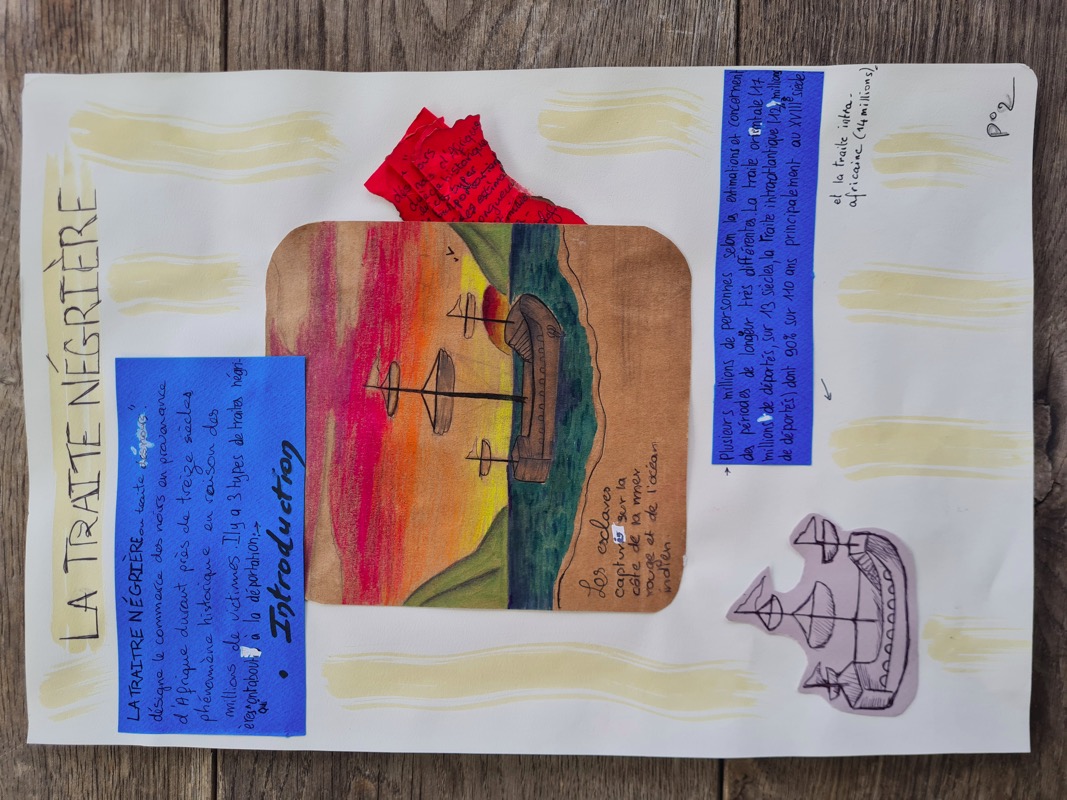 LA TRAITE NÉGRIÈRE
LA TRAITRE NÉGRIÈRE ou traite
désigne le commerce des noirs en provenance
d'Afrique durant près de treize siècles
phénomène historique en raison des
millions de victimes. Il y a 3 types de traites négri-
ères ont abouti à la déportation:→
Qui
• Introduction
d'Afrique
historique
Les esclaves
capturés sur la
côte de la mer
rouge et de l'océan
indien.
→ Plusieurs millions de personnes selon les estimations et concernent
des périodes de longueur très différentes. La traite orientale (17
millions de déportés, sur 13 siècles, la Traite (12, millions
de déportés) dont 90% sur 110 ans principalement au XVIIIe siècle.
et la traite intra-
africaine (14 millions).
P°2